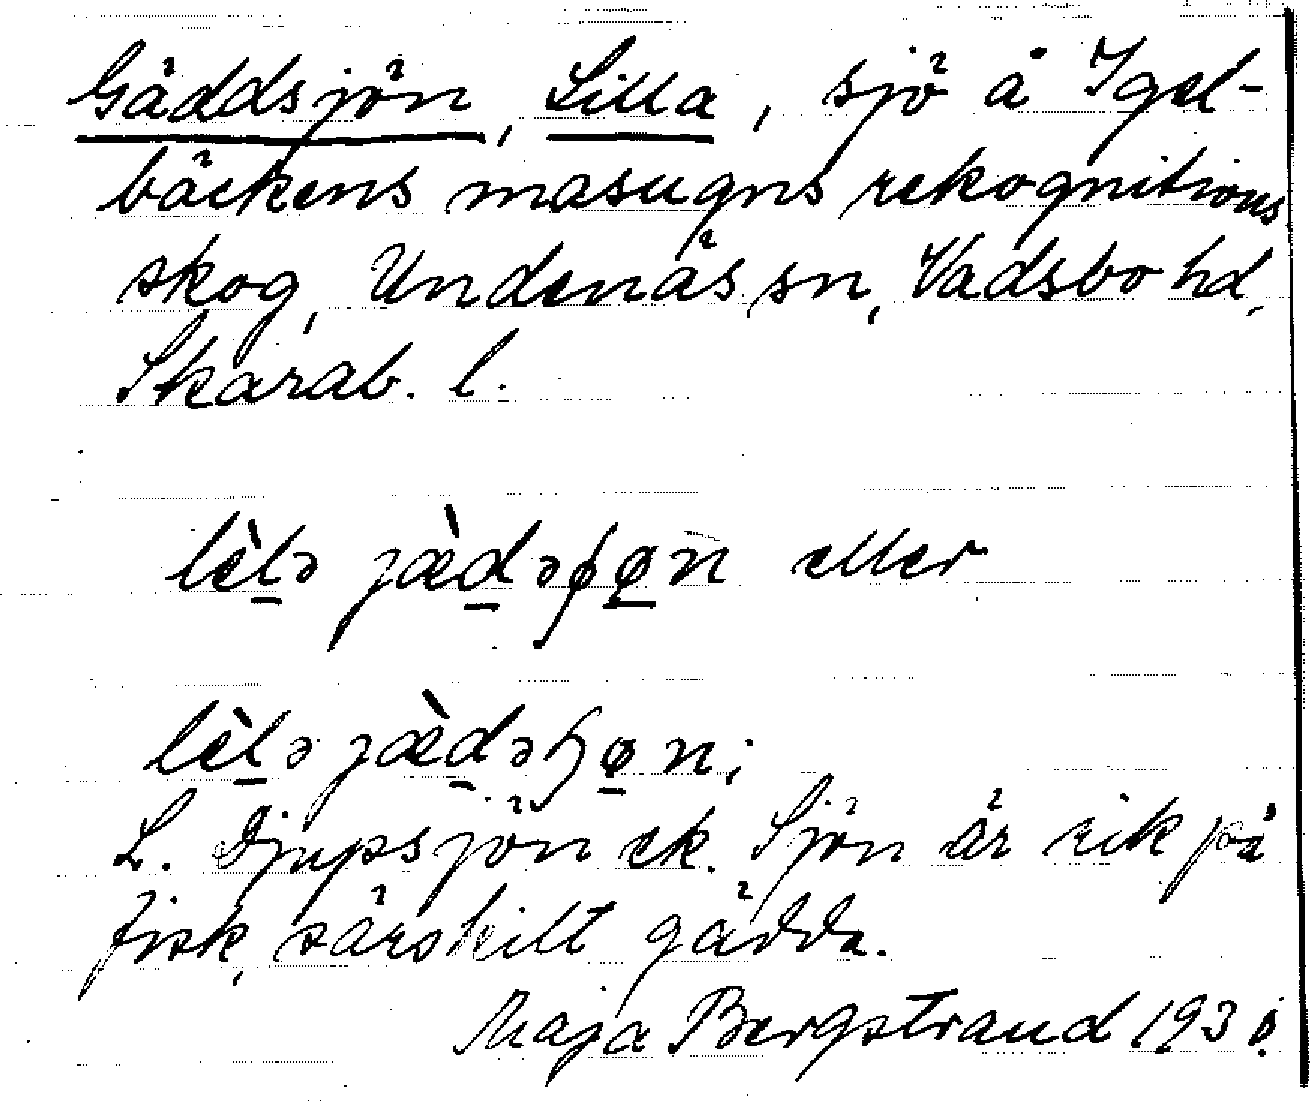 Gäddsjön, Lilla, sjö å Igel-
bäckens masugns rekognitions
skog, Undenäs sn, Vadsbo hd,
Skarab. l.
eller
L. Djupsjön ek. Sjön är rik på
fisk, särskilt gädda.
Maja Bergstrand